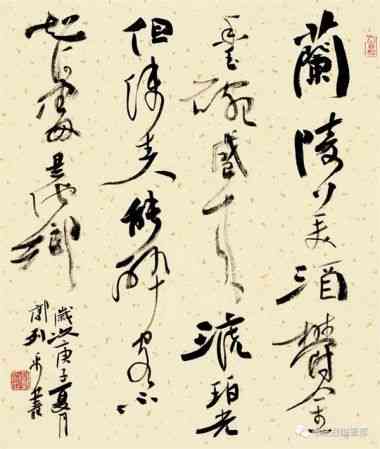 蘭陵美酒鬱金
香玉碗盛来琥珀光
但使主人能醉客不
知何處是他鄉
歲次庚子夏月
書